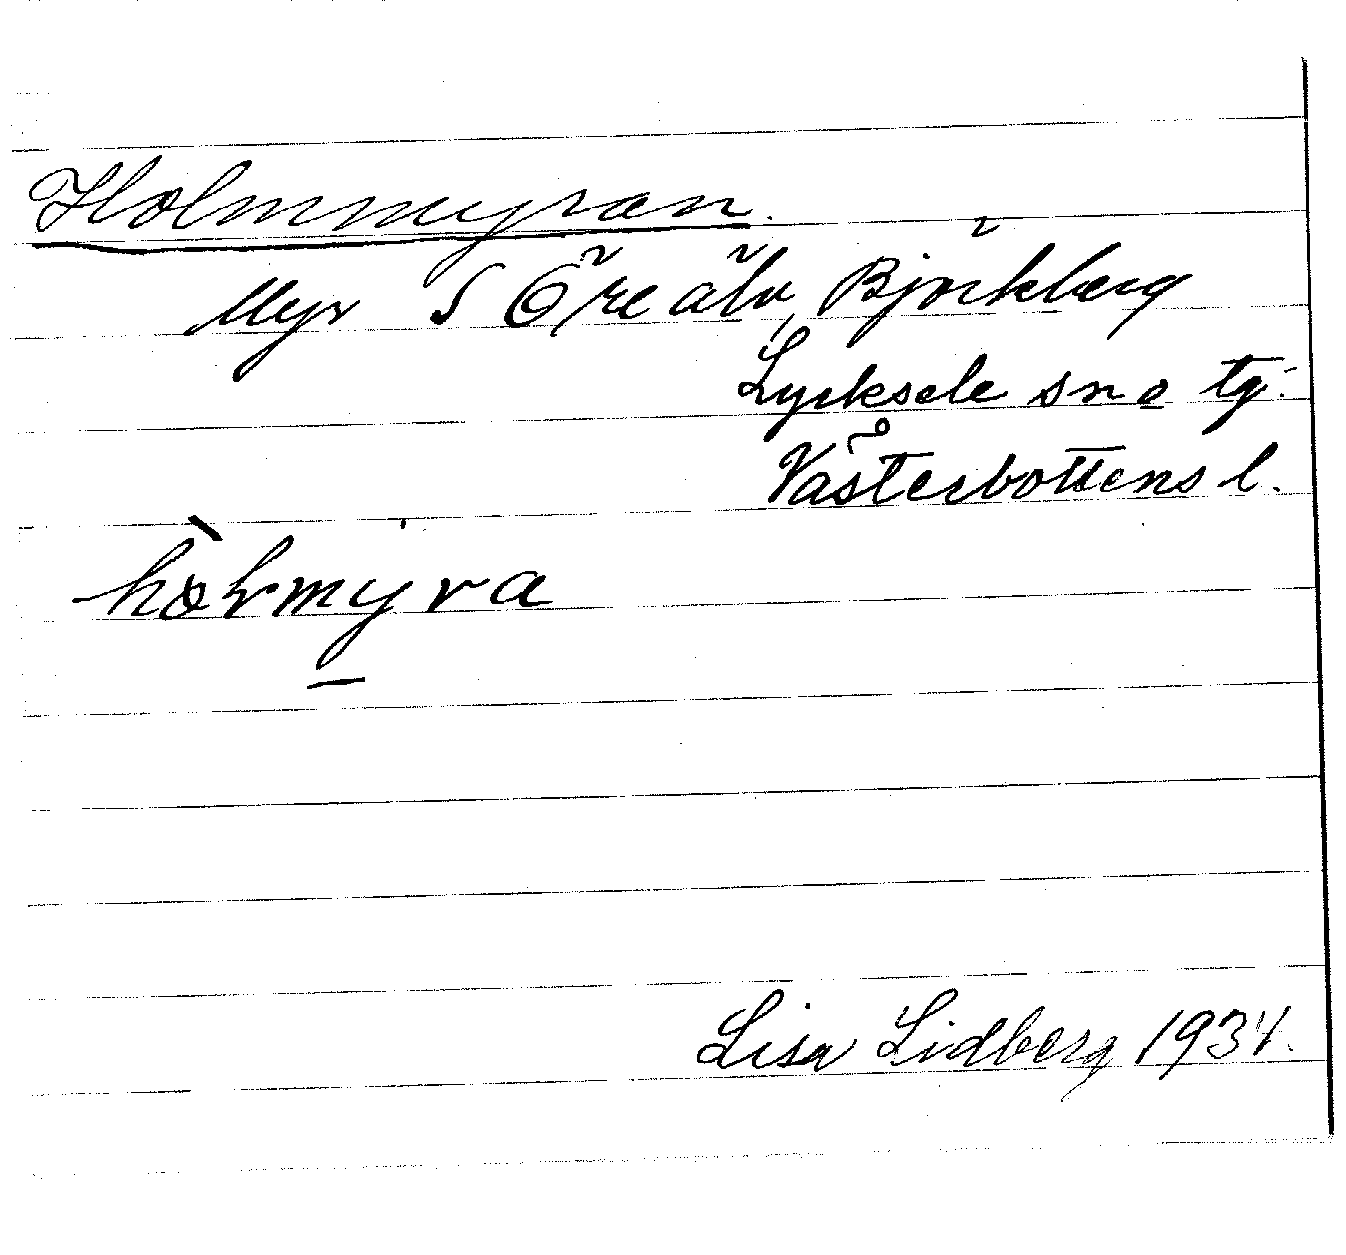 Holmmyran.
Myr S Öre älv, Björkberg
Lycksele sn o tg.
Västerbottens l.
Lisa Lidberg 1934.